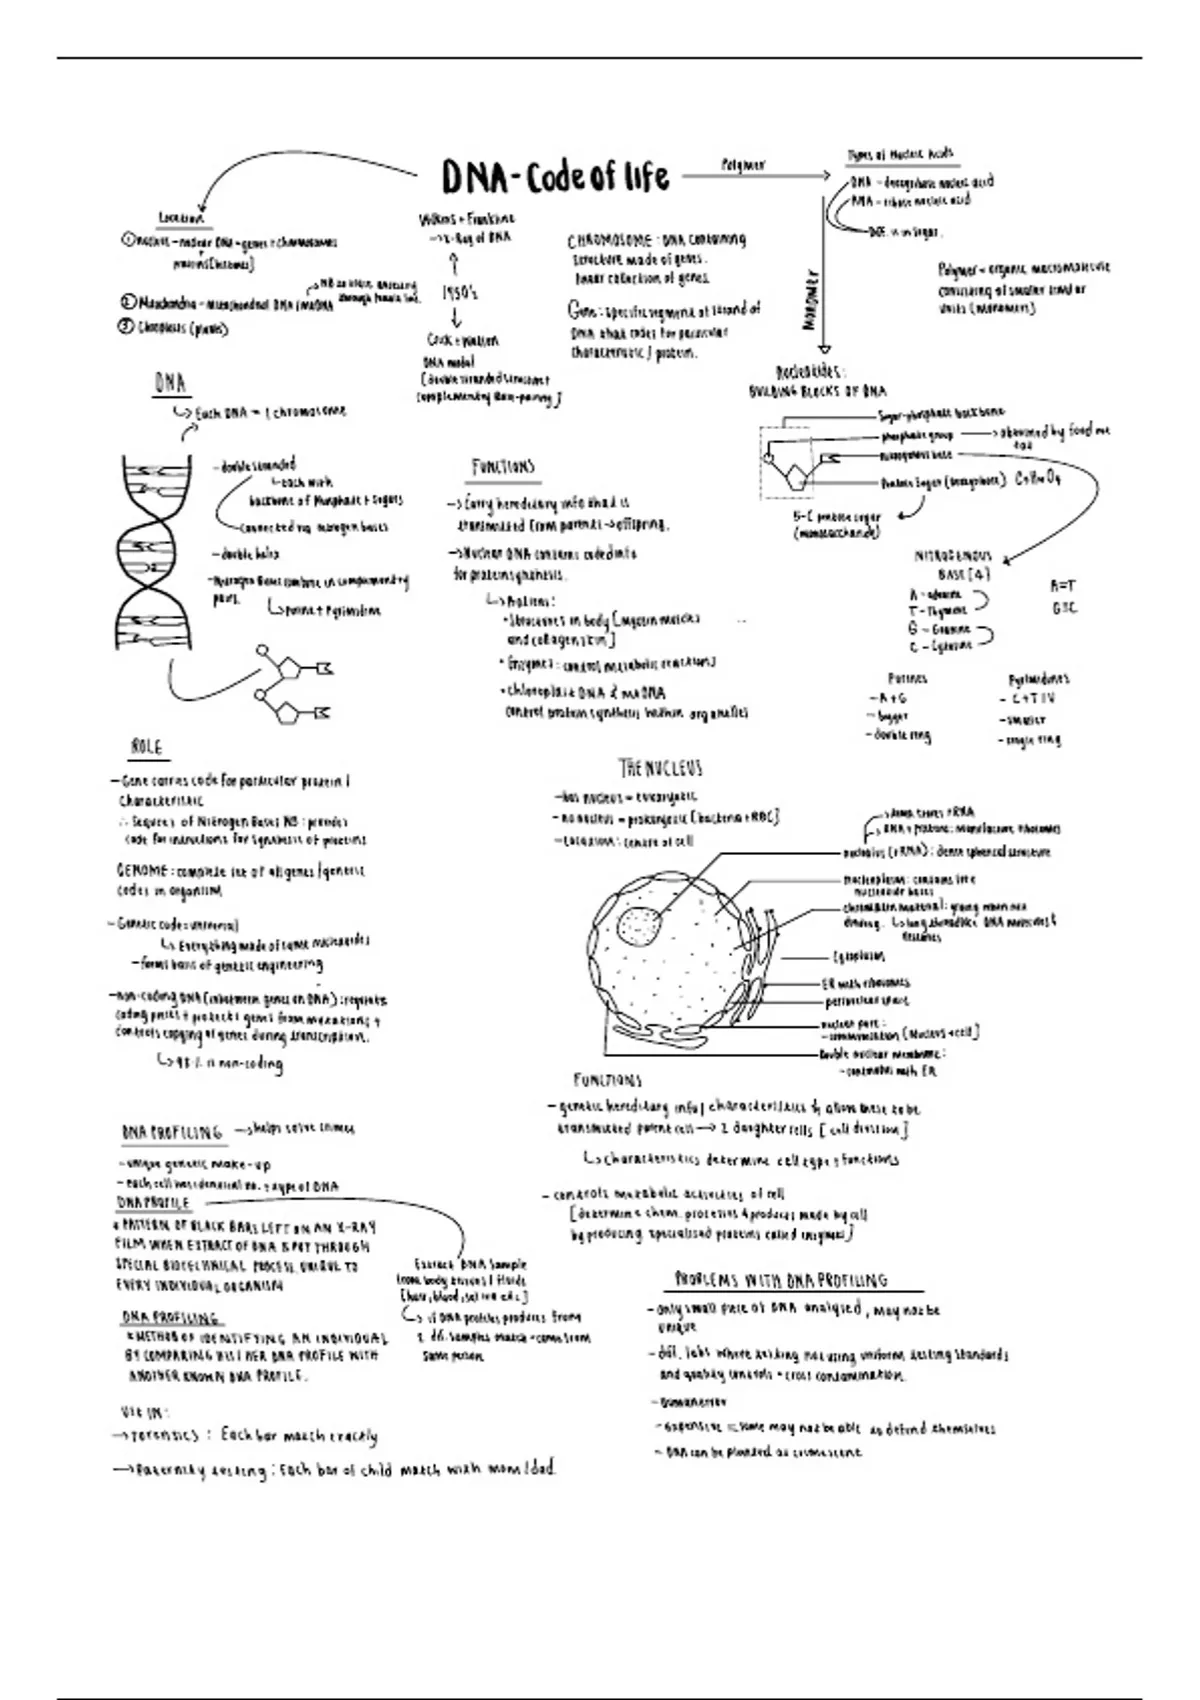 DNA - Code of life
Polymer
Types of Nucleic Acids
DNA - deoxyribose nucleic acid
RNA - ribose nucleic acid
Diff. is in sugar.
Polymer = organic macromolecule
consisting of smaller
units (monomers)
Monomer
Location
① nucleus - nuclear DNA - genes + chromosomes
proteins [histones]
② Mitochondria - mitochondrial DNA / mtDNA
through female line.
③ Chloroplasts (plants)
Wilkins + Franklin
→ X-Ray of DNA
1950's
Crick + Watson
DNA model
[double stranded structure +
complementary base-pairing]
CHROMOSOME: DNA containing
structure made of genes.
linear collection of genes.
Gene: specific segment of strand of
DNA that codes for particular
characteristic / protein.
DNA
↳ Each DNA = 1 chromosome
- double stranded
↳ each with
backbone of Phosphate + sugars
connected via nitrogen bases
- double helix
- Nitrogen Bases combine in complementary
pairs.
↳ purine + Pyrimidine
FUNCTIONS
→ Carry hereditary info that is
transmitted from parents → offspring.
→ Nuclear DNA contains coded info
for protein synthesis.
↳ Proteins:
• Structures in body [myosin muscles
and collagen skin]
• Enzymes: control metabolic reactions
• chloroplast DNA & mtDNA
control protein synthesis within organelles
Nucleotides:
BUILDING BLOCKS OF DNA
Sugar-phosphate backbone
phosphate group → obtained by food we
eat
nitrogenous base
Pentose Sugar (deoxyribose)
5-C pentose sugar
(monosaccharide)
NITROGENOUS
BASE [4]
A - adenine
T - Thymine
G - Guanine
C - Cytosine
A=T
G≡C
Purines
- A + G
- bigger
- double ring
Pyrimidines
- C + T / U
- smaller
- single ring
ROLE
- Gene carries code for particular protein /
characteristic
∴ Sequence of Nitrogen Bases NB: provides
code for instructions for synthesis of proteins
GENOME: complete set of all genes / genetic
codes in organism
- Genetic code = universal
↳ Everything made of same nucleotides
- forms basis of genetic engineering
- non-coding DNA (inbetween genes on DNA): regulates
coding parts + protects genes from mutations +
controls copying of genes during transcription.
↳ 98% is non-coding
THE NUCLEUS
- has nucleus = eukaryotic
- no nucleus = prokaryotic [bacteria + RBC]
- Location: centre of cell
RNA + proteins: manufacture ribosomes
nucleolus (rRNA): dense spherical structure
nucleoplasm: contains free
nucleotide bases
chromatin material: young when not
dividing. ↳ long threadlike DNA molecules +
histones
Cytoplasm
ER with ribosomes
perinuclear space
nuclear pore:
- communication [Nucleus + cell]
Double nuclear membrane:
- continuous with ER
FUNCTIONS
- genetic hereditary info / characteristics & allow these to be
transmitted parent cell → 2 daughter cells [cell division]
↳ characteristics determine cell type + functions
- controls metabolic activities of cell
[determine chem. processes & products made by cell
by producing specialised proteins called enzymes]
DNA PROFILING → helps solve crimes
- unique genetic make-up
- each cell has identical no. + type of DNA
DNA PROFILE
* PATTERN OF BLACK BARS LEFT ON AN X-RAY
FILM WHEN EXTRACT OF DNA IS PUT THROUGH
SPECIAL BIOTECHNICAL PROCESS. UNIQUE TO
EVERY INDIVIDUAL ORGANISM
Extract DNA sample
from body tissues / fluids
[hair, blood, saliva etc]
↳ if DNA profiles produces from
2 diff. samples match = came from
same person
DNA PROFILING
* METHOD OF IDENTIFYING AN INDIVIDUAL
BY COMPARING HIS / HER DNA PROFILE WITH
ANOTHER KNOWN DNA PROFILE.
USE IN:
→ Forensics: Each bar match exactly
→ Paternity testing: Each bar of child match with mom / dad.
PROBLEMS WITH DNA PROFILING
- only small piece of DNA analysed, may not be
unique
- diff. labs where testing not using uniform testing standards
and quality controls = cross contamination.
- Human error
- expensive = some may not be able to defend themselves
- DNA can be planted at crime scene